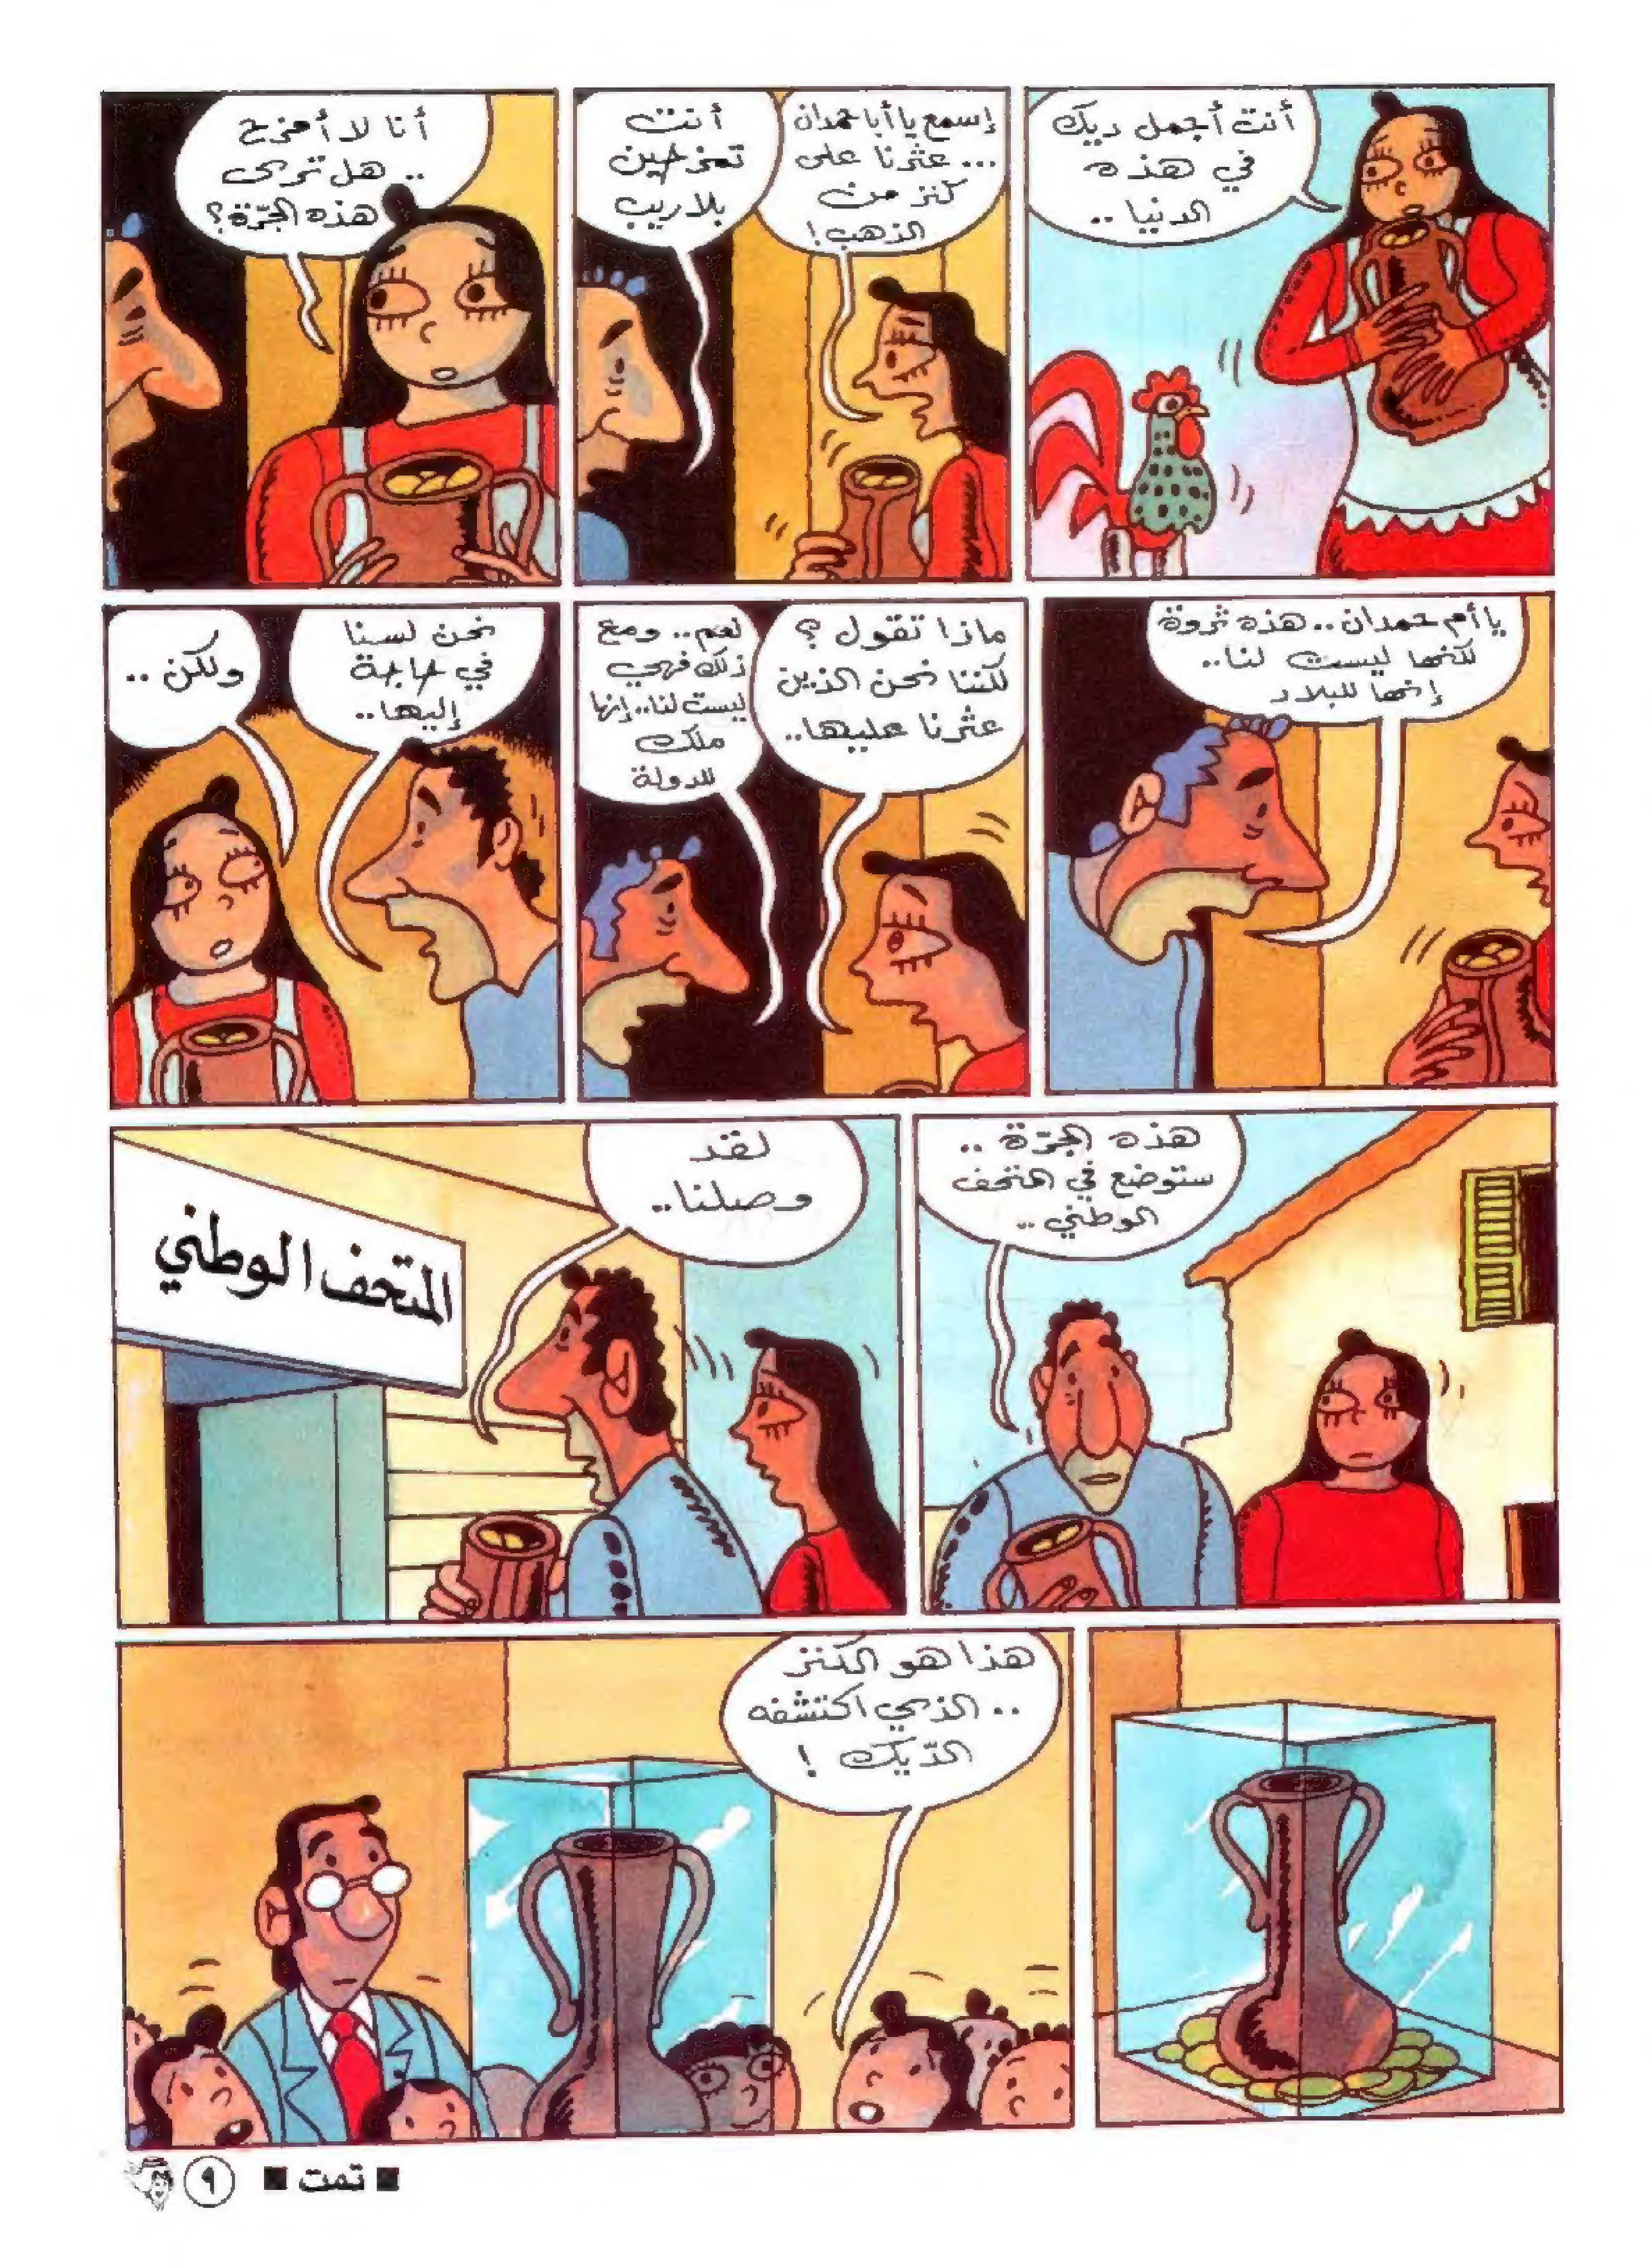 أنت أجمل ديك
في هذه
الدنيا ..
إسمع يا أبا حمدان
... عثرنا على
كنز من
الذهب!
أنت
تمزحين
بلا ريب
أنا لا أمزح
.. هل ترى
هذه الجرّة؟
يا أم حمدان.. هذه ثروة
لكنها ليست لنا..
إنها للبلاد
ماذا تقول ؟
لكننا نحن الذين
عثرنا عليها..
نعم.. ومع
ذلك فهي
ليست لنا..إنها
ملك
للدولة
نحن لسنا
في حاجة
إليها..
ولكن ..
هذه الجرّة ..
ستوضع في المتحف
الوطني ..
لقد
وصلنا..
المتحف الوطني
هذا هو الكنز
.. الذي اكتشفه
الدّيك !
■ تمت ■
٩